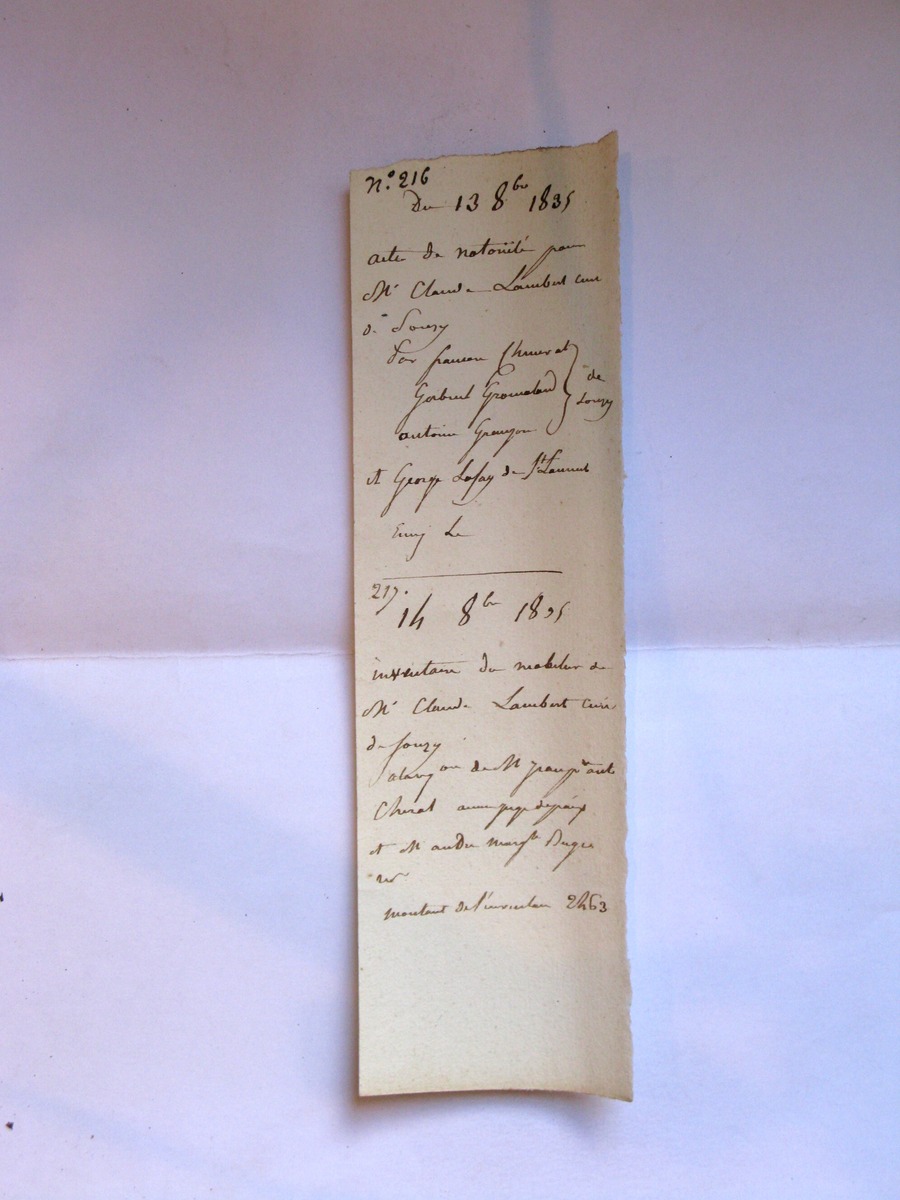 n.° 216
Du 13 8bre 1835
acte de notoriété pour
Mr Claude Lambert curé
de Souzy
Par francois Chuverat
Gabriel Gromolard
antoine Granjon
de Souzy
et George Lafay de St Laurent
Enrg Le
217.
14 8bre 1835
inventaire du mobilier de
Mr Claude Lambert curé
de Souzy
de M
Cherat juge de paix
et M andré Marg
not
montant de l'inventaire 2463